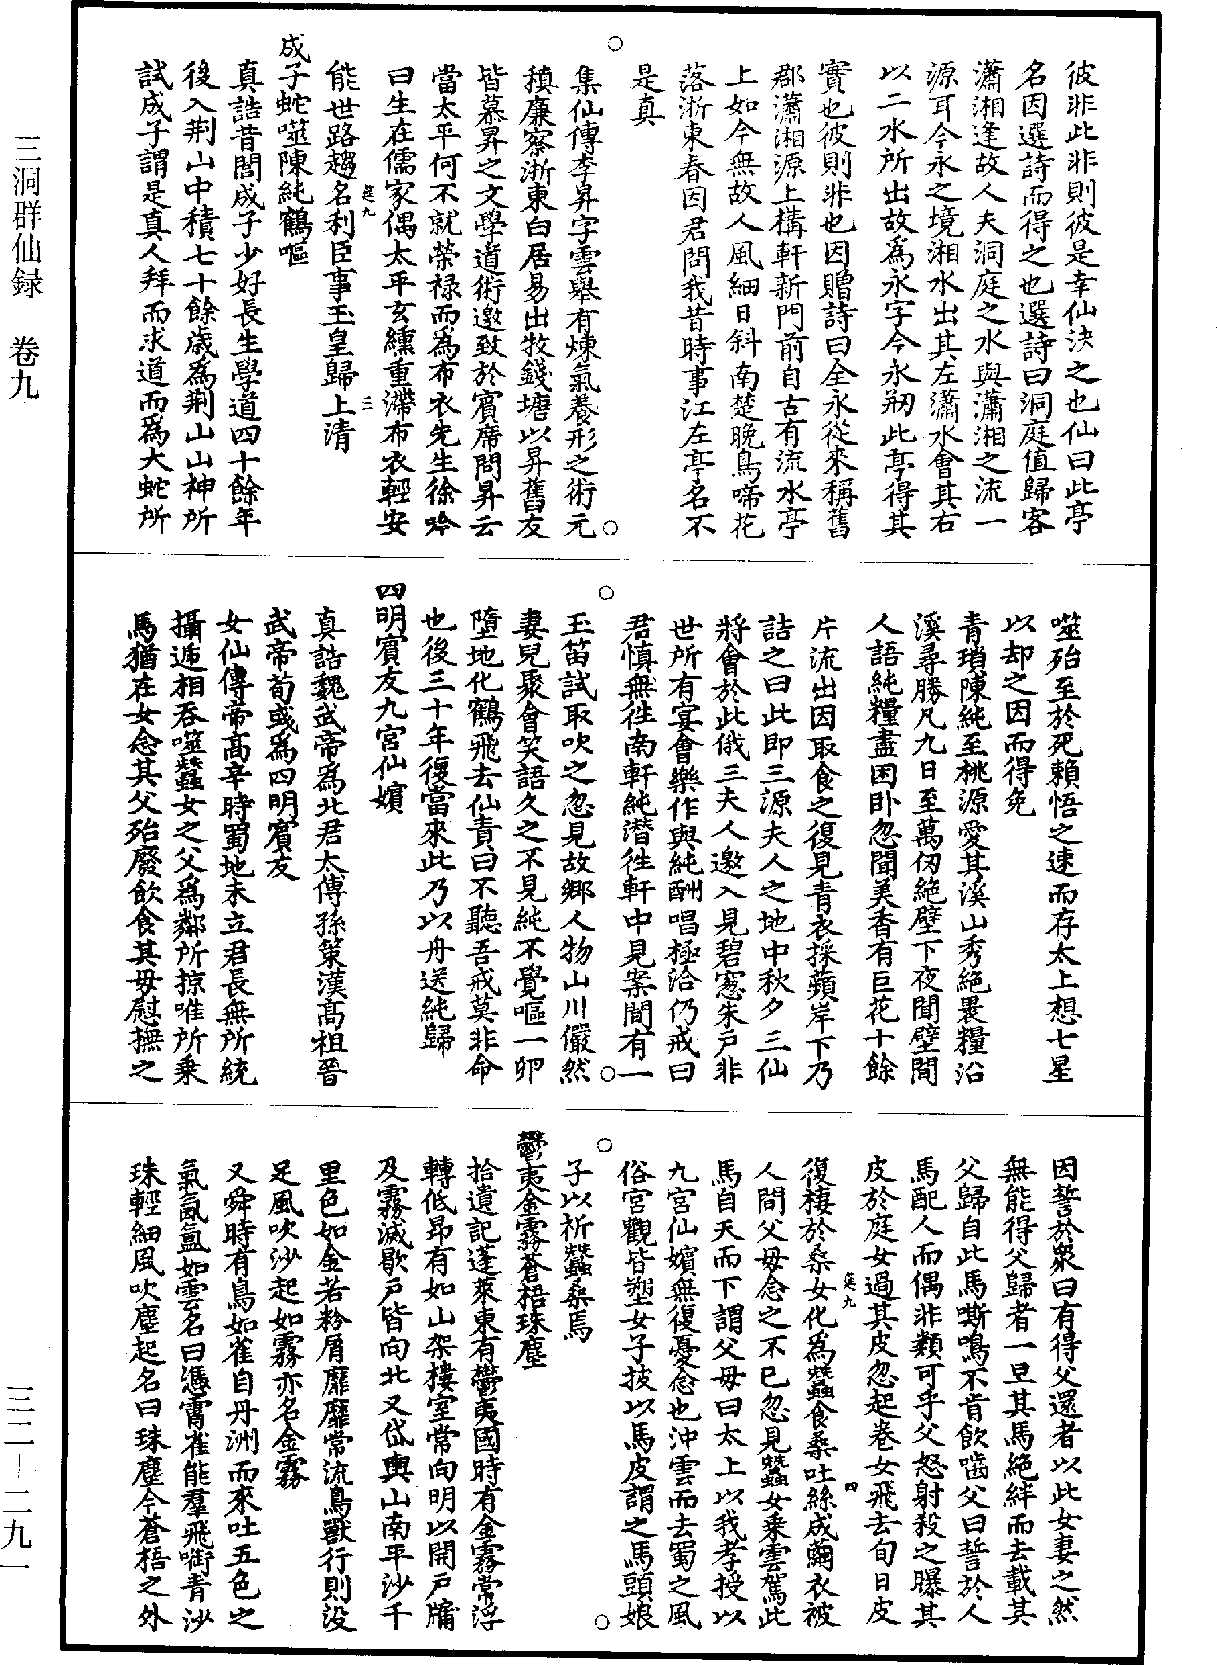 彼非此非則彼是幸仙決之也仙曰此亭
名因選詩而得之也選詩曰洞庭值歸客
瀟湘逢故人夫洞庭之水與瀟湘之流一
源耳今永之境湘水出其左瀟水會其右
以二水所出故爲永字今永剏此亭得其
實也彼則非也因贈詩曰全永從來稱舊
郡瀟湘源上構軒新門前自古有流水亭
上如今無故人風細日斜南楚晚鳥啼花
落浙東春因君問我昔時事江左亭名不
是真
○
集仙傳李昇字雲舉有煉氣養形之術元
稹廉察浙東白居易出牧錢塘以昇舊友
皆慕昇之文學道術邀致於賓席問昇云
當太平何不就榮祿而爲布衣先生徐吟
曰生在儒家偶太平玄纁重滯布衣輕安
能世路趨名利臣事玉皇歸上清
○
成子蛇噬陳純鶴嘔
真誥昔閻成子少好長生學道四十餘年
後入荆山中積七十餘歲爲荆山山神所
試成子謂是真人拜而求道而爲大蛇所
噬殆至於死賴悟之速而存太上想七星
以却之因而得免
青瑣陳純至桃源愛其溪山秀絶褁糧沿
溪尋勝凡九日至萬仞絶壁下夜聞壁間
人語純糧盡困卧忽聞美香有巨花十餘
片流出因取食之復見青衣採蘋岸下乃
詰之曰此即三源夫人之地中秋夕三仙
將會於此俄三夫人邀入見碧窻朱戶非
世所有宴會樂作與純酬唱極洽仍戒曰
君慎無徃南軒純潛徃軒中見案間有一
○
玉笛試取吹之忽見故鄉人物山川儼然
妻兒聚會笑語久之不見純不覺嘔一卵
墮地化鶴飛去仙責曰不聽吾戒莫非命
也後三十年復當來此乃以舟送純歸
○
四明賓友九宮仙嬪
真誥魏武帝為北君太傅孫策漢高祖晉
武帝荀彧爲四明賓友
女仙傳帝高辛時蜀地未立君長無所統
攝遞相吞噬蠶女之父爲鄰所掠唯所乗
馬猶在女念其父殆廢飲食其母慰撫之
因誓於衆曰有得父還者以此女妻之然
無能得父歸者一旦其馬絶絆而去載其
父歸自此馬嘶鳴不肯飲嚙父曰誓於人
馬配人而偶非類可乎父怒射殺之曝其
皮於庭女過其皮忽起卷女飛去旬日皮
復棲於桑女化為蠶食桑吐絲成繭衣被
人間父母念之不已忽見蠶女乘雲駕此
馬自天而下謂父母曰太上以我孝授以
九宮仙嬪無復憂念也沖雲而去蜀之風
俗宮觀皆塑女子披以馬皮謂之馬頭娘
○
子以祈蠶桑焉
○
鬱夷金霧蒼梧珠塵
拾遺記蓬萊東有鬱夷國時有金霧常浮
轉低昻有如山架樓室常向明以開戶牖
及霧滅歇戶皆向北又岱輿山南平沙千
里色如金若粉屑靡靡常流鳥獸行則没
足風吹沙起如霧亦名金霧
又舜時有鳥如雀自丹洲而來吐五色之
氣氤氳如雲名曰憑霄雀能羣飛㗸青沙
珠輕細風吹塵起名曰珠塵今蒼梧之外
三洞群仙録　卷九
三二―二九一